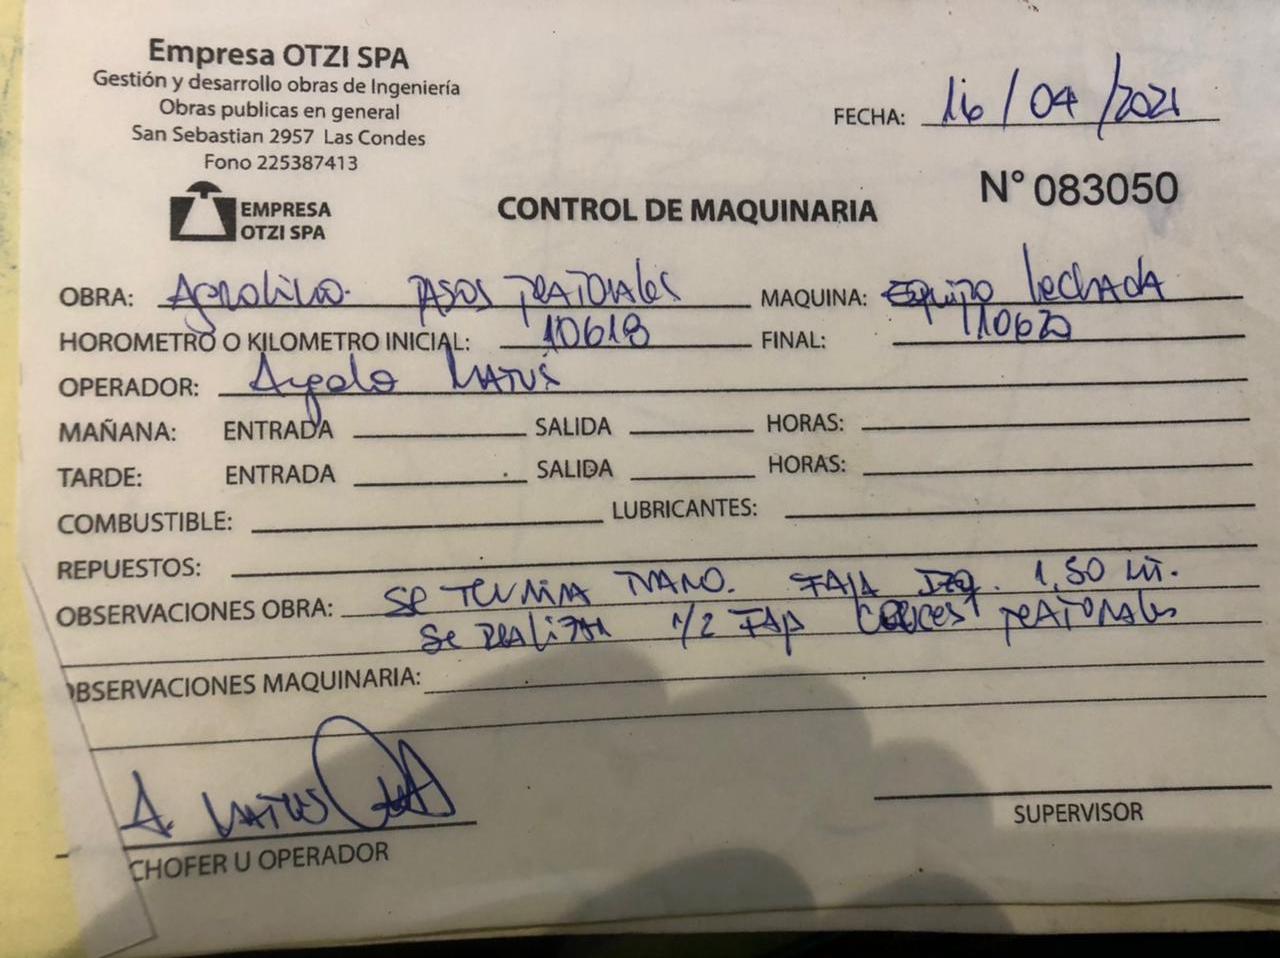 Empresa OTZI SPA
Gestión y desarrollo obras de Ingeniería
Obras publicas en general
San Sebastian 2957 Las Condes
Fono 225387413
EMPRESA
OTZI SPA
FECHA: 16/04/2021
CONTROL DE MAQUINARIA
N° 083050
OBRA: PASOS PEATONALES MAQUINA: Equipo lechada
HOROMETRO O KILOMETRO INICIAL: 10618 FINAL: 110620
OPERADOR: Angelo MATUS
MAÑANA: ENTRADA SALIDA HORAS:
TARDE: ENTRADA SALIDA HORAS:
COMBUSTIBLE: LUBRICANTES:
REPUESTOS:
OBSERVACIONES OBRA: Se TERMINA TRAMO. FAJA IZQ. 1,50 MT.
Se REALIZAN 1/2 FAJA CRUCES PEATONALES
OBSERVACIONES MAQUINARIA:
A. MATUS
CHOFER U OPERADOR
SUPERVISOR